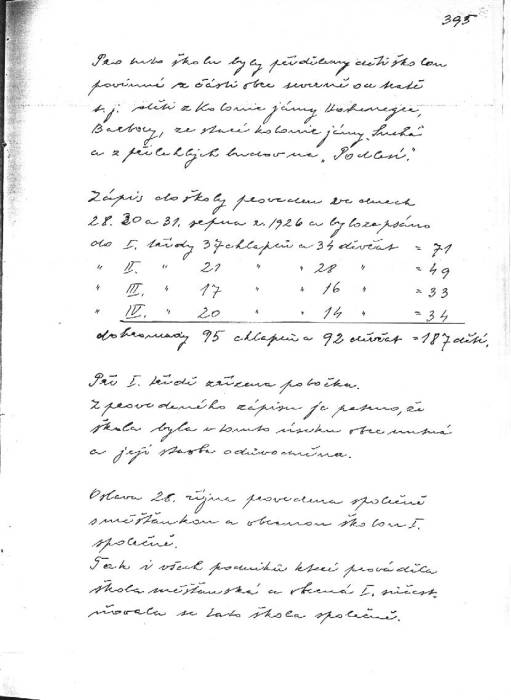 395
Pro tuto školu byly přiděleny děti školou
povinné z části obce severně od trati
t. j. děti z Kolonie jámy Hohenegger,
Barbory, ze staré kolonie jámy „Suchá"
a z přilehlých budov na „Podlesí".
Zápis do školy proveden ve dnech
28. 30 a 31. srpna r. 1926 a bylo zapsáno
do I. třídy 37 chlapců a 34 děvčat = 71
" II. " 21 " " 28 " = 49
" III. " 17 " " 16 " = 33
" IV. " 20 " " 14 " = 34
dohromady 95 chlapců a 92 děvčat = 187 dětí.
Při I. třídě zřízena pobočka.
Z provedeného zápisu je patrno, že
škola byla v tomto úseku obce nutná
a její stavba odůvodněna.
Oslava 28. října provedena společně
s měšťankou a obecnou školou I.
společně.
Tak i všech podniků které prováděla
škola měšťanská a obecná I. súčast-
ňovala se tato škola společně.